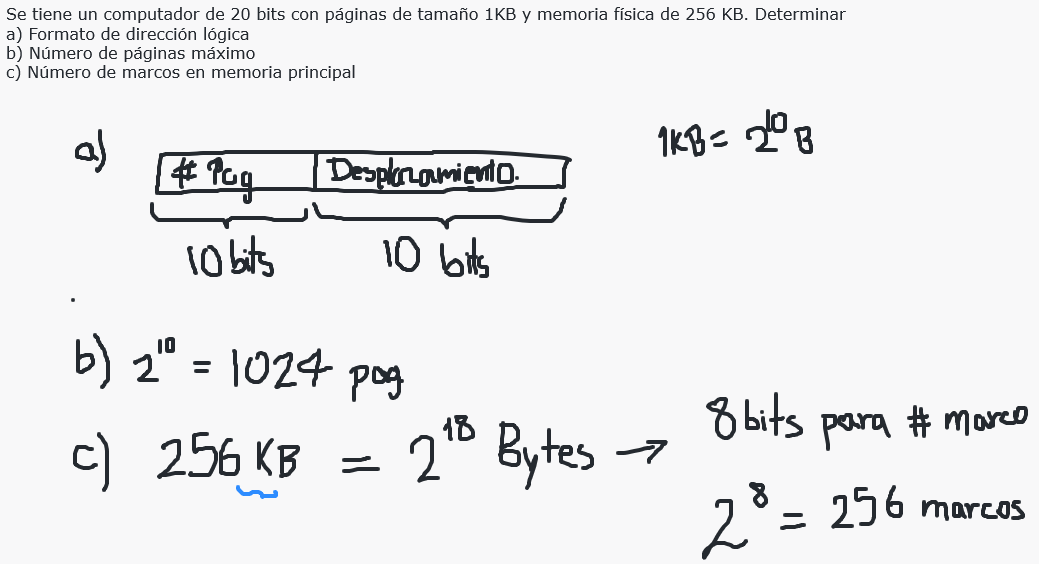 Se tiene un computador de 20 bits con páginas de tamaño 1KB y memoria física de 256 KB. Determinar
a) Formato de dirección lógica
b) Número de páginas máximo
c) Número de marcos en memoria principal
a) # Pag Desplazamiento. 1KB = 2^10 B
10 bits 10 bits
b) 2^10 = 1024 pag
c) 256 KB = 2^18 Bytes → 8 bits para # marco
2^8 = 256 marcos